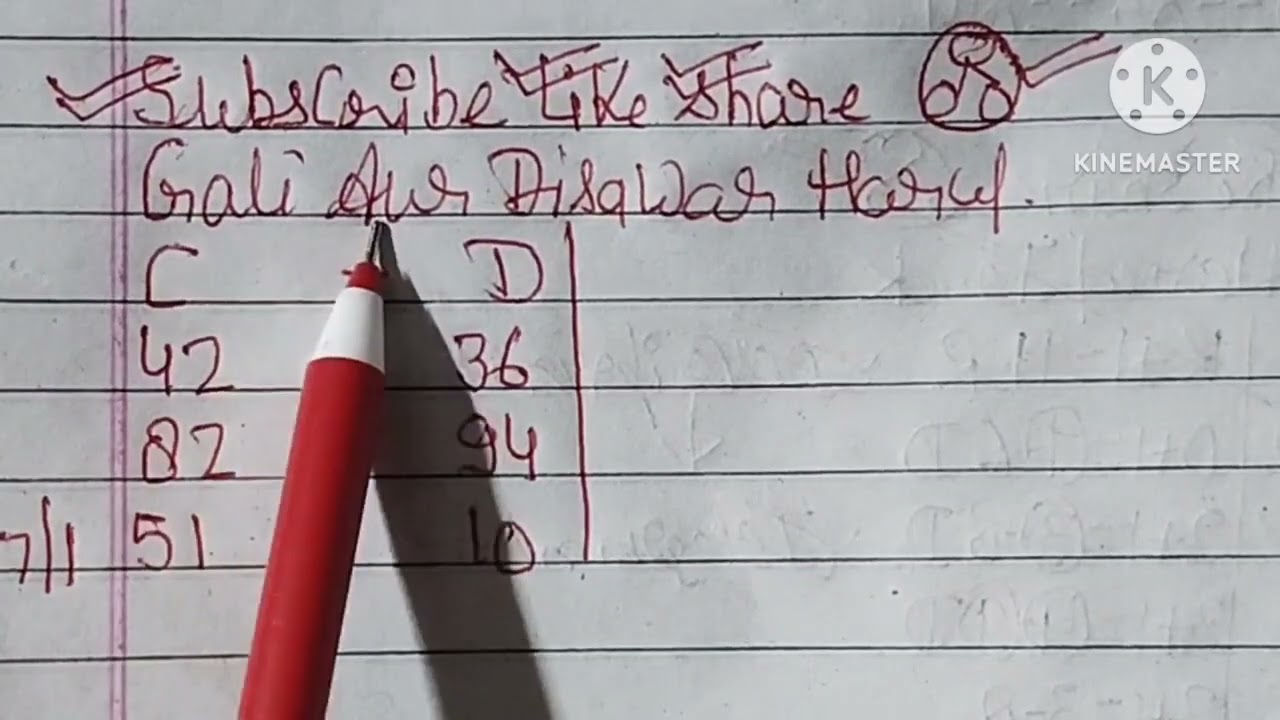 Subscribe Like Share
K
KINEMASTER
Gali Aur Disawar Haruf.
C D
42 36
82 94
7/1 51 10